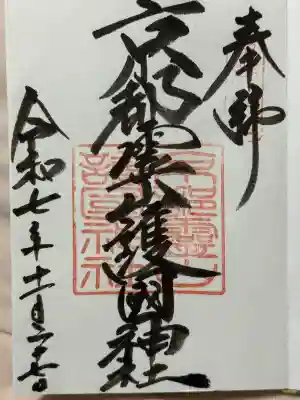 奉拝
京都霊山護國神社
令和七年十一月二十七日